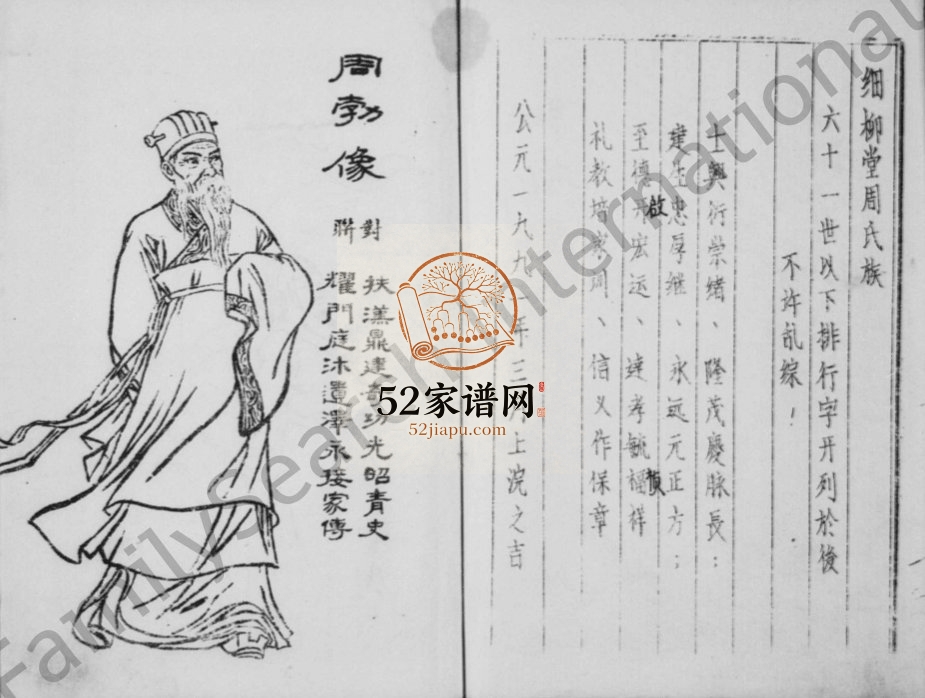 细柳堂周氏族
六十一世以下排行字开列於後
不许乱综！
士興衍崇緒、隆茂慶脉長：
建 忠厚継、永远元正方；
至德 啟宏运、建孝毓福祥
禎
礼教培 、信义作保章
公元一九九 年三 上浣之吉
周勃像
對聯
扶漢鼎建奇功光昭青史
耀門庭沐遺澤永接家傳
52家谱网
52jiapu.com
FamilySearch International